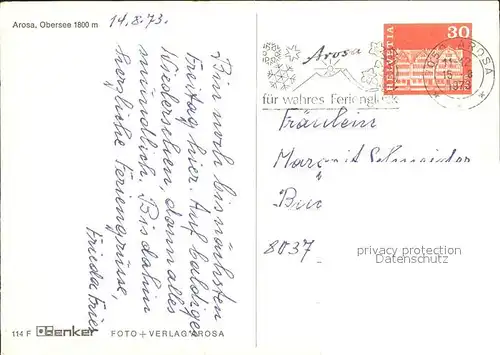 Arosa, Obersee 1800 m
14.8.73.
Bin noch bis nächsten
Freitag hier. Auf baldiges
Wiedersehen, dann alles
mündlich. Bis dahin
herzliche Feriengrüsse,
Frieda Frier
114 F Benker FOTO + VERLAG AROSA
Arosa
für wahres Ferienglück
HELVETIA
30
AROSA
1973
Fräulein
Margrit
8037
privacy protection
Datenschutz